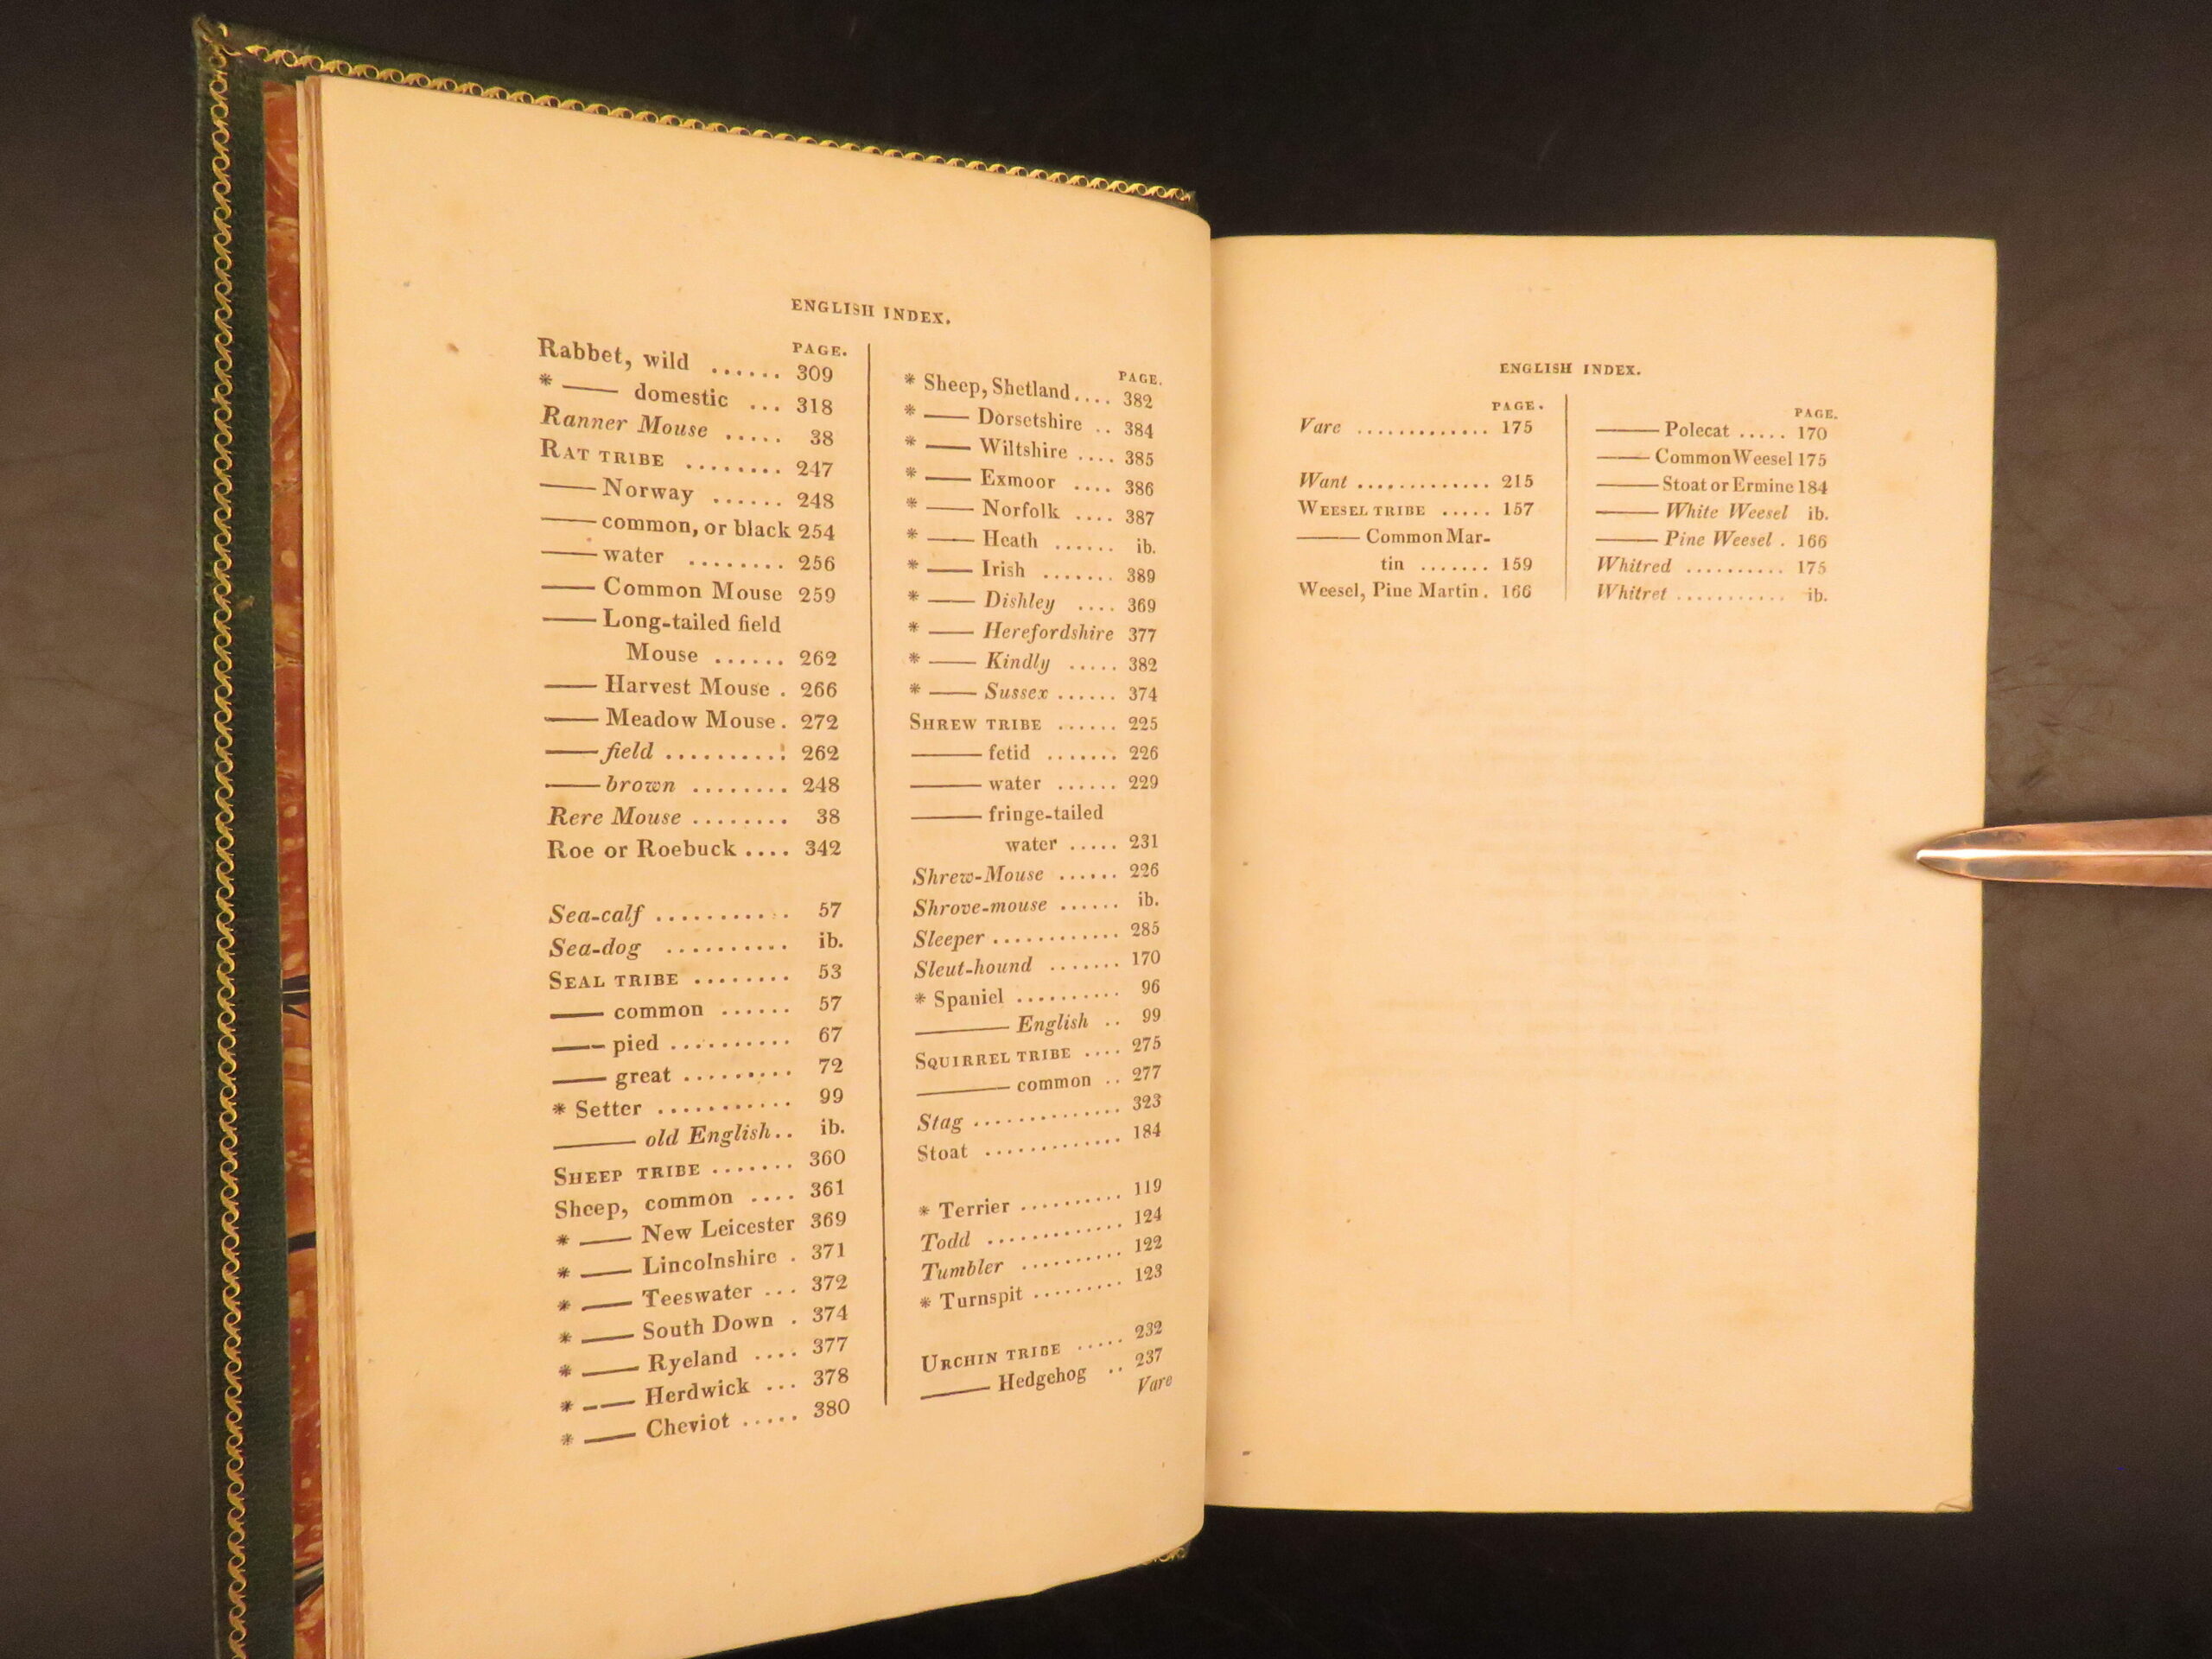 ENGLISH INDEX.
PAGE.
Rabbet, wild ...... 309
* —— domestic ... 318
Ranner Mouse ..... 38
RAT TRIBE ........ 247
—— Norway ...... 248
—— common, or black 254
—— water ........ 256
—— Common Mouse 259
—— Long-tailed field
Mouse ...... 262
—— Harvest Mouse . 266
—— Meadow Mouse . 272
—— field .......... 262
—— brown ........ 248
Rere Mouse ........ 38
Roe or Roebuck .... 342
Sea-calf ........... 57
Sea-dog .......... ib.
SEAL TRIBE ........ 53
—— common ...... 57
—— pied .......... 67
—— great ......... 72
* Setter ........... 99
—— old English.. ib.
SHEEP TRIBE ....... 360
Sheep, common .... 361
* —— New Leicester 369
* —— Lincolnshire . 371
* —— Teeswater ... 372
* —— South Down . 374
* —— Ryeland .... 377
* —— Herdwick ... 378
* —— Cheviot ..... 380
PAGE.
* Sheep, Shetland.... 382
* —— Dorsetshire .. 384
* —— Wiltshire .... 385
* —— Exmoor .... 386
* —— Norfolk .... 387
* —— Heath ...... ib.
* —— Irish ....... 389
* —— Dishley .... 369
* —— Herefordshire 377
* —— Kindly ..... 382
* —— Sussex ...... 374
SHREW TRIBE ...... 225
—— fetid ....... 226
—— water ...... 229
—— fringe-tailed
water ..... 231
Shrew-Mouse ...... 226
Shrove-mouse ...... ib.
Sleeper ............ 285
Sleut-hound ....... 170
* Spaniel .......... 96
—— English .. 99
SQUIRREL TRIBE .... 275
—— common .. 277
Stag ............. 323
Stoat ............. 184
* Terrier .......... 119
Todd ............ 124
Tumbler .......... 122
* Turnspit ......... 123
URCHIN TRIBE ..... 232
—— Hedgehog .. 237
Vare
ENGLISH INDEX.
PAGE.
Vare ............. 175
Want ............. 215
WEESEL TRIBE ..... 157
—— Common Mar-
tin ....... 159
Weesel, Pine Martin . 166
PAGE.
—— Polecat ..... 170
—— Common Weesel 175
—— Stoat or Ermine 184
—— White Weesel ib.
—— Pine Weesel . 166
Whitred .......... 175
Whitret ........... ib.